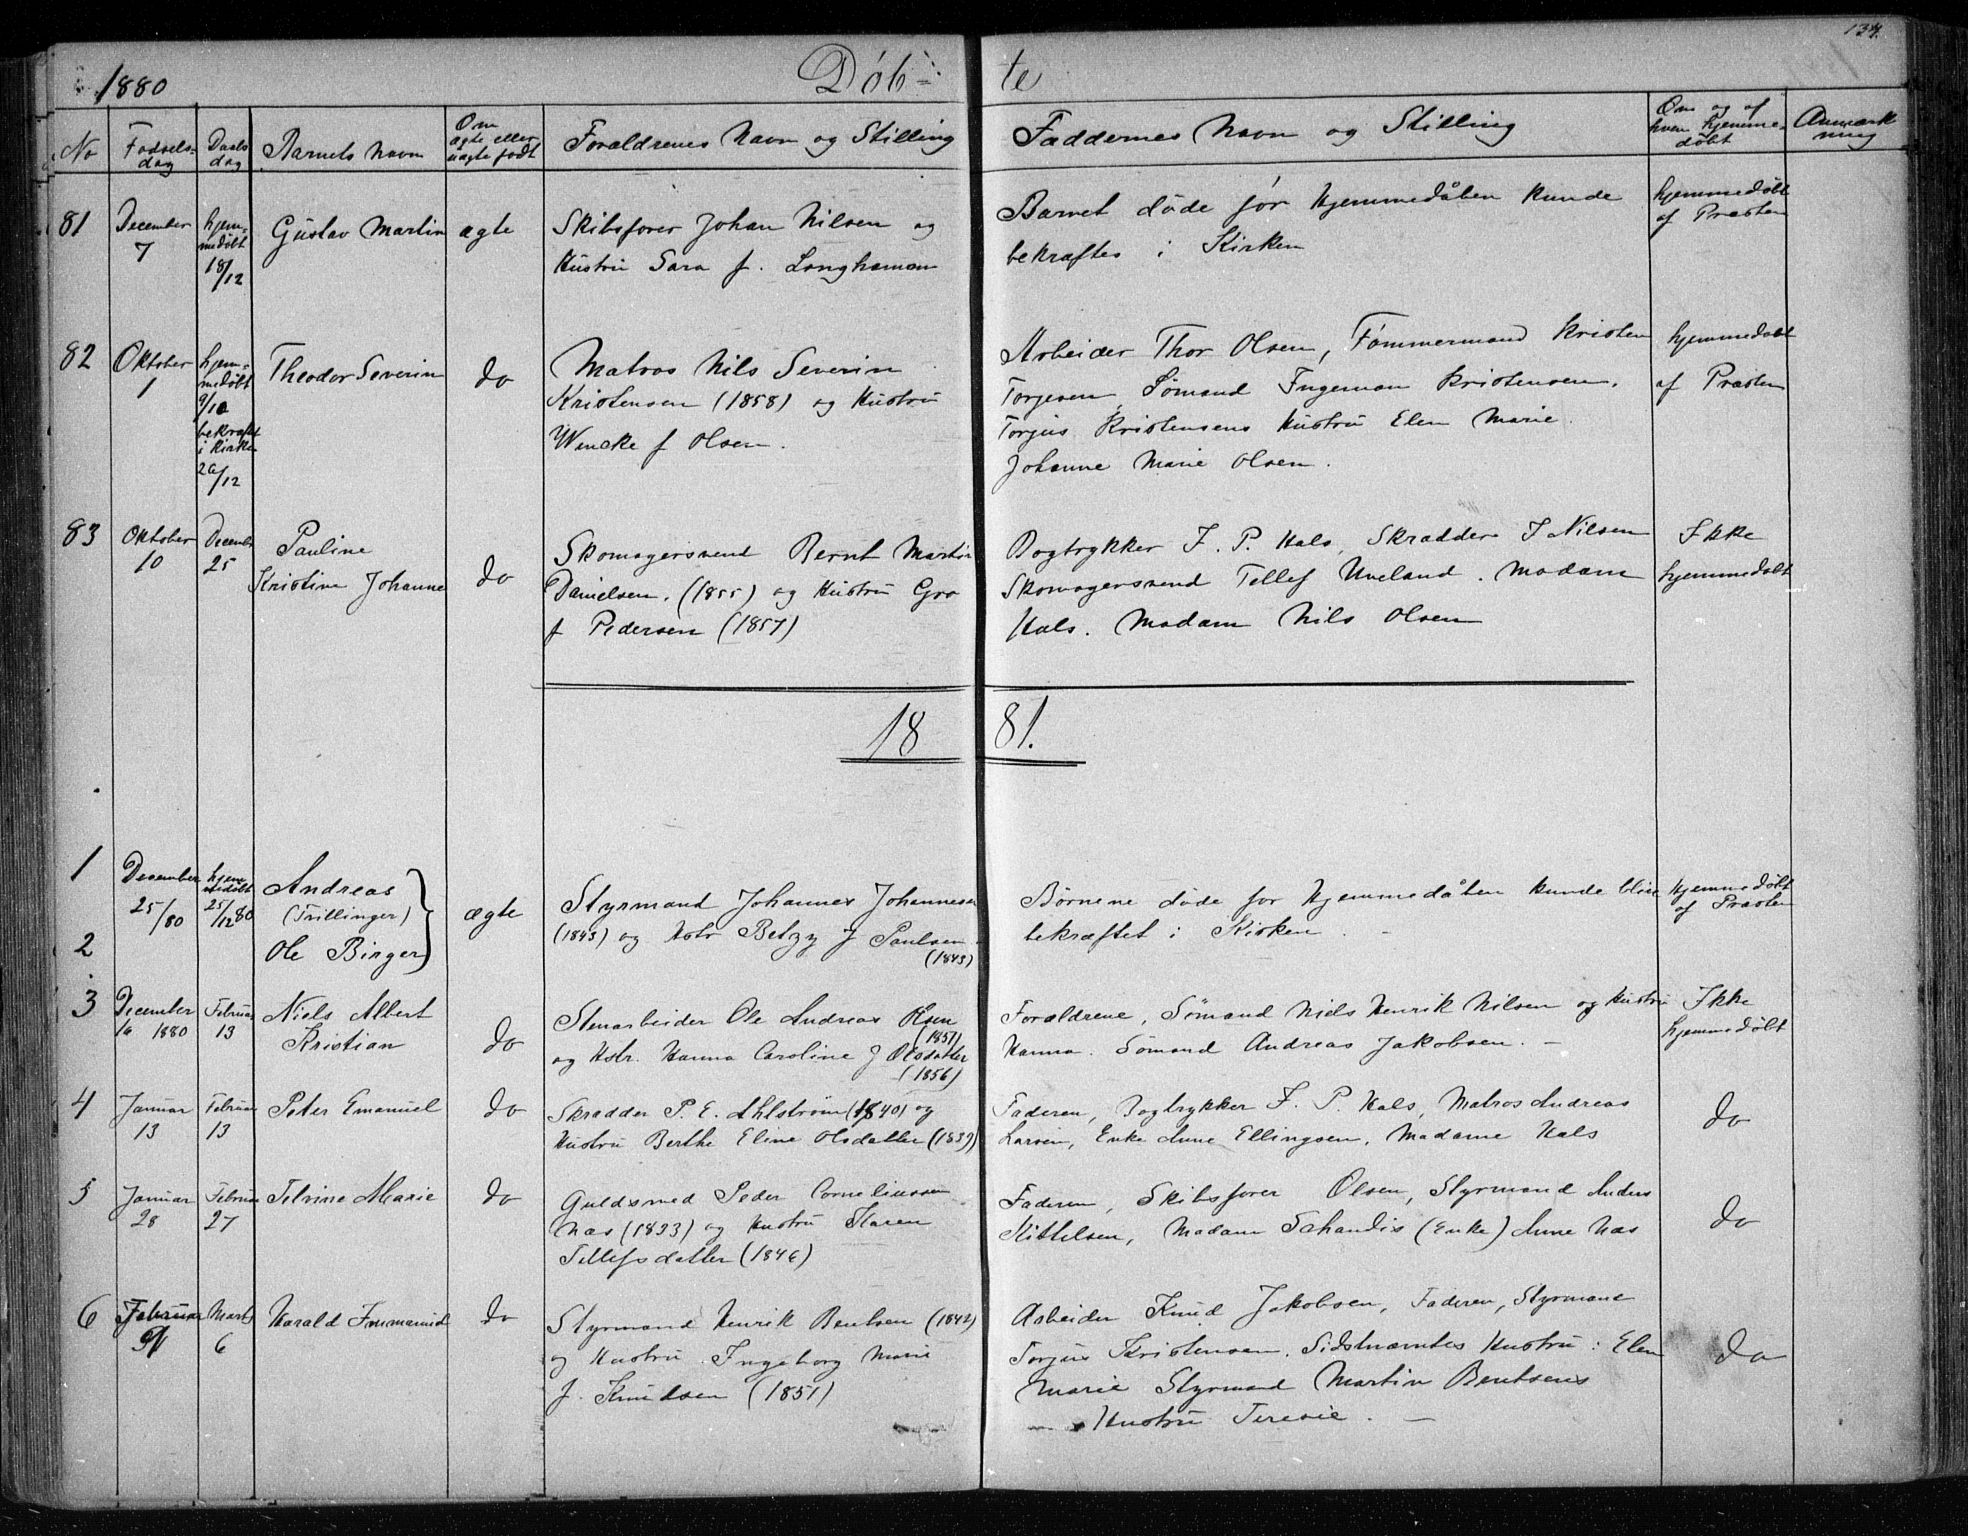 134.
1880
Døb-
te
No
Fødsels-
dag
Daabs
dag
Barnets Navn
Om
ægte eller
uægte født
Forældrenes Navn og Stilling
Faddernes Navn og Stilling
Om og af
hvem hjemme-
døbt
Anmærk
ning
81
December
7
hjem-
medøbt
18/12
Gustav Martin
ægte
Skibsfører Johan Nilsen og
Hustru Sara f. Langhaman
Barnet døde før Hjemmedåben kunde
bekræftes i Kirken
hjemmedøbt
af Præsten
82
Oktober
1
hjem-
medøbt
9/10
bekræft
i Kirke
26/12
Theodor Severin
do
Matros Nils Severin
Kristensen (1858) og Hustru
Wencke f Olsen.
Arbeider Thor Olsen, Tømmermand Kristen
Torjesen, Sømand Ingeman Kristensen.
Torjus Kristensens Hustru Elen Marie.
Johanne Marie Olsen.
hjemmedøbt
af Præsten
83
Oktober
10
Decembr
25
Pauline
Kristine Johanne
do
Skomagersvend Bernt Martin
Danielsen. (1855) og Hustru Gro
f Pedersen (1857)
Bogtrykker F. P. Hals, Skrædder J Nilsen
Skomagersvend Tellef Uveland. Madam
Hals. Madam Nils Olsen
Ikke
hjemmedøbt
1881.
1
December
25/80
hjem
medøbt
25/12 80
Andreas
(Trillinger)
2
Ole Birger
ægte
Styrmand Johannes Johannesen
(1843) og Hstr Betzy f Paulsen
(1843)
Børnene døde før Hjemmedåben kunde blive
bekræftet i Kirken. -
hjemmedøbt
af Præsten
3
December
16 1880
Februar
13
Niels Albert
Kristian
do
Stenarbeider Ole Andreas Olsen
(1851)
og Hstr. Hanna Caroline f Olsdatter
(1856)
Forældrene, Sømand Niels Henrik Nilsen og Hustru
Hanna. Sømand Andreas Jakobsen. -
Ikke
hjemmedøbt
4
Januar
13
Februar
13
Peter Emanuel
do
Skrædder P. E. Ahlstrøm (1840) og
Hustru Berthe Eline Olsdatter (1839)
Faderen, Bogtrykker F. P. Hals, Matros Andreas
Larsen, Enke Anne Ellingsen, Madame Hals
do
5
Januar
28
Februar
27
Telvine Marie
do
Guldsmed Peder Corneliussen
Næs (1833) og Hustru Karen
Tellefsdatter (1846)
Faderen, Skibsfører Olsen, Styrmand Anders
Kittelsen, Madam Schandis (Enke) Anne Næs
do
6
Februar
Marts
6
Harald
do
Styrmand Henrik Bentsen (1842)
og Hustru Ingeborg Marie
f. Knudsen (1851)
Arbeider Knud Jakobsen, Faderen, Styrmand
Torjus Kristensen. Sidstnævntes Hustru: Elen
Marie Styrmand Martin Bentsens
Hustru Teresie. -
do